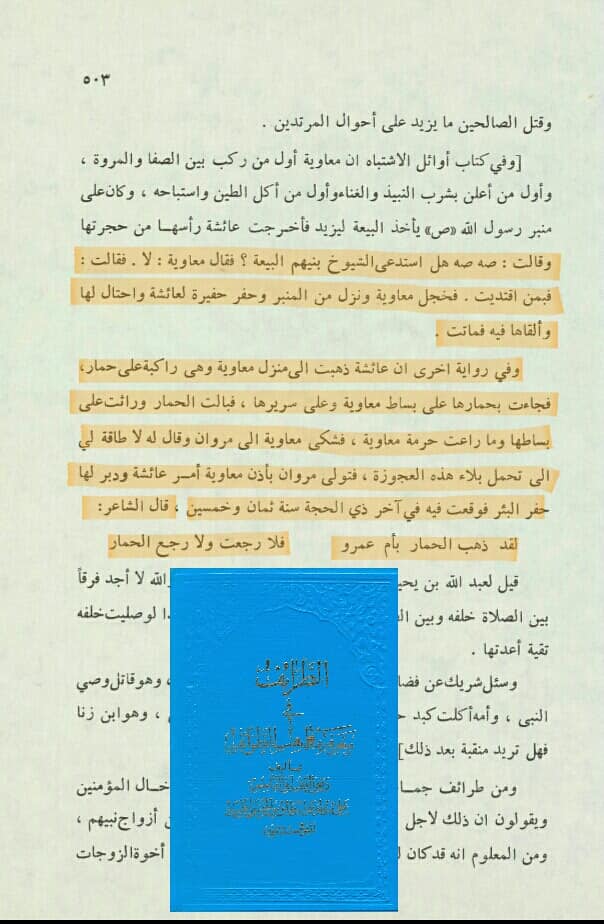 ٥٠٣
وقتل الصالحين ما يزيد على أحوال المرتدين .
[وفي كتاب أوائل الاشتباه ان معاوية أول من ركب بين الصفا والمروة ،
وأول من أعلن بشرب النبيذ والغناء وأول من أكل الطين واستباحه ، وكان على
منبر رسول الله «ص» يأخذ البيعة ليزيد فأخرجت عائشة رأسها من حجرتها
وقالت : صه صه هل استدعى الشيوخ بنيهم البيعة ؟ فقال معاوية : لا . فقالت :
فبمن اقتديت . فخجل معاوية ونزل من المنبر وحفر حفيرة لعائشة واحتال لها
وألقاها فيه فماتت .
وفي رواية اخرى ان عائشة ذهبت الى منزل معاوية وهى راكبة على حمار،
فجاءت بحمارها على بساط معاوية وعلى سريرها ، فبالت الحمار وراثت على
بساطها وما راعت حرمة معاوية ، فشكى معاوية الى مروان وقال له لا طاقة لي
الى تحمل بلاء هذه العجوزة ، فتولى مروان بأذن معاوية أمر عائشة ودبر لها
حفر البئر فوقعت فيه في آخر ذي الحجة سنة ثمان وخمسين ، قال الشاعر:
لقد ذهب الحمار بأم عمرو فلا رجعت ولا رجع الحمار
قيل لعبد الله بن يحيى والله لا أجد فرقاً
بين الصلاة خلفه وبين لوصليت خلفه
تقية أعدتها .
وسئل شريك عن ، وهو قاتل وصي
النبى ، وأمه أكلت كبد ، وهو ابن زنا
فهل تريد منقبة بعد ذلك]
ومن طرائف خال المؤمنين
ويقولون ان ذلك لاجل أزواج نبيهم ،
ومن المعلوم انه قد كان أخوة الزوجات
الطرائف
في
معرفة مذاهب الطوائف
تأليف